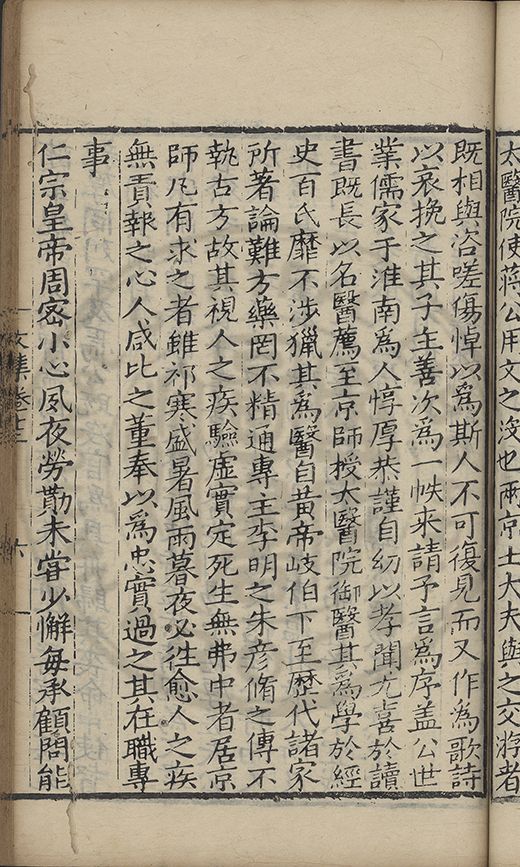 太醫院使蔣公用文之沒也兩京士大夫與之交游者
既相與咨嗟傷悼以爲斯人不可復見而又作爲歌詩
以哀挽之其子主善次爲一帙來請予言爲序盖公世
業儒家于淮南爲人惇厚恭謹自幼以孝聞尤喜於讀
書既長以名醫薦至京師授太醫院御醫其爲學於經
史百氏靡不涉獵其爲醫自黄帝岐伯下至歷代諸家
所著論難方藥罔不精通專主李明之朱彦脩之傳不
執古方故其視人之疾驗虚實定死生無弗中者居京
師凡有求之者雖祁寒盛暑風雨暮夜必徃愈人之疾
無責報之心人咸比之董奉以爲忠實過之其在職專
事
仁宗皇帝周宻小心夙夜勞勩未甞少懈每承顧問能
文集卷十三
六